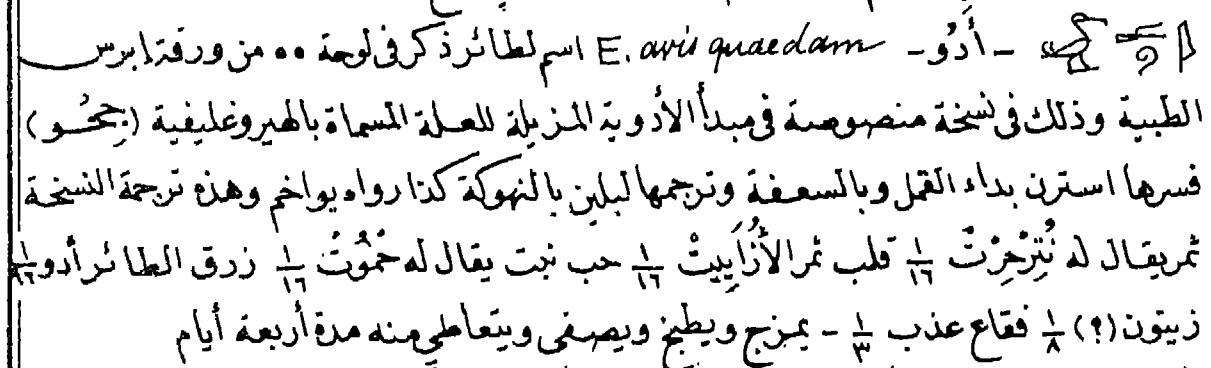 - أَدُو - E. avis quaedam اسم لطائر ذكر فى لوحة ٥٥ من ورقة ابرس
الطبية وذلك فى نسخة منصوصة فى مبدأ الأدوية المزيلة للعلة المسماة بالهيروغليفية (جحُو)
فسرها استرن بداء القمل وبالسعفة وترجمها لبلين بالنهوكة كذا رواه يواخم وهذه ترجمة النسخة
ثمر يقال له ١/١٦ قلب ثمر ١/١٦ حب نبت يقال له خَمُوتُ ١/١٦ زرق الطائر أدو ١/١٦
زيتون (؟) ١/٨ فقاع عذب ١/٣ - يمزج ويطبخ ويصفى ويتعاطى منه مدة أربعة أيام